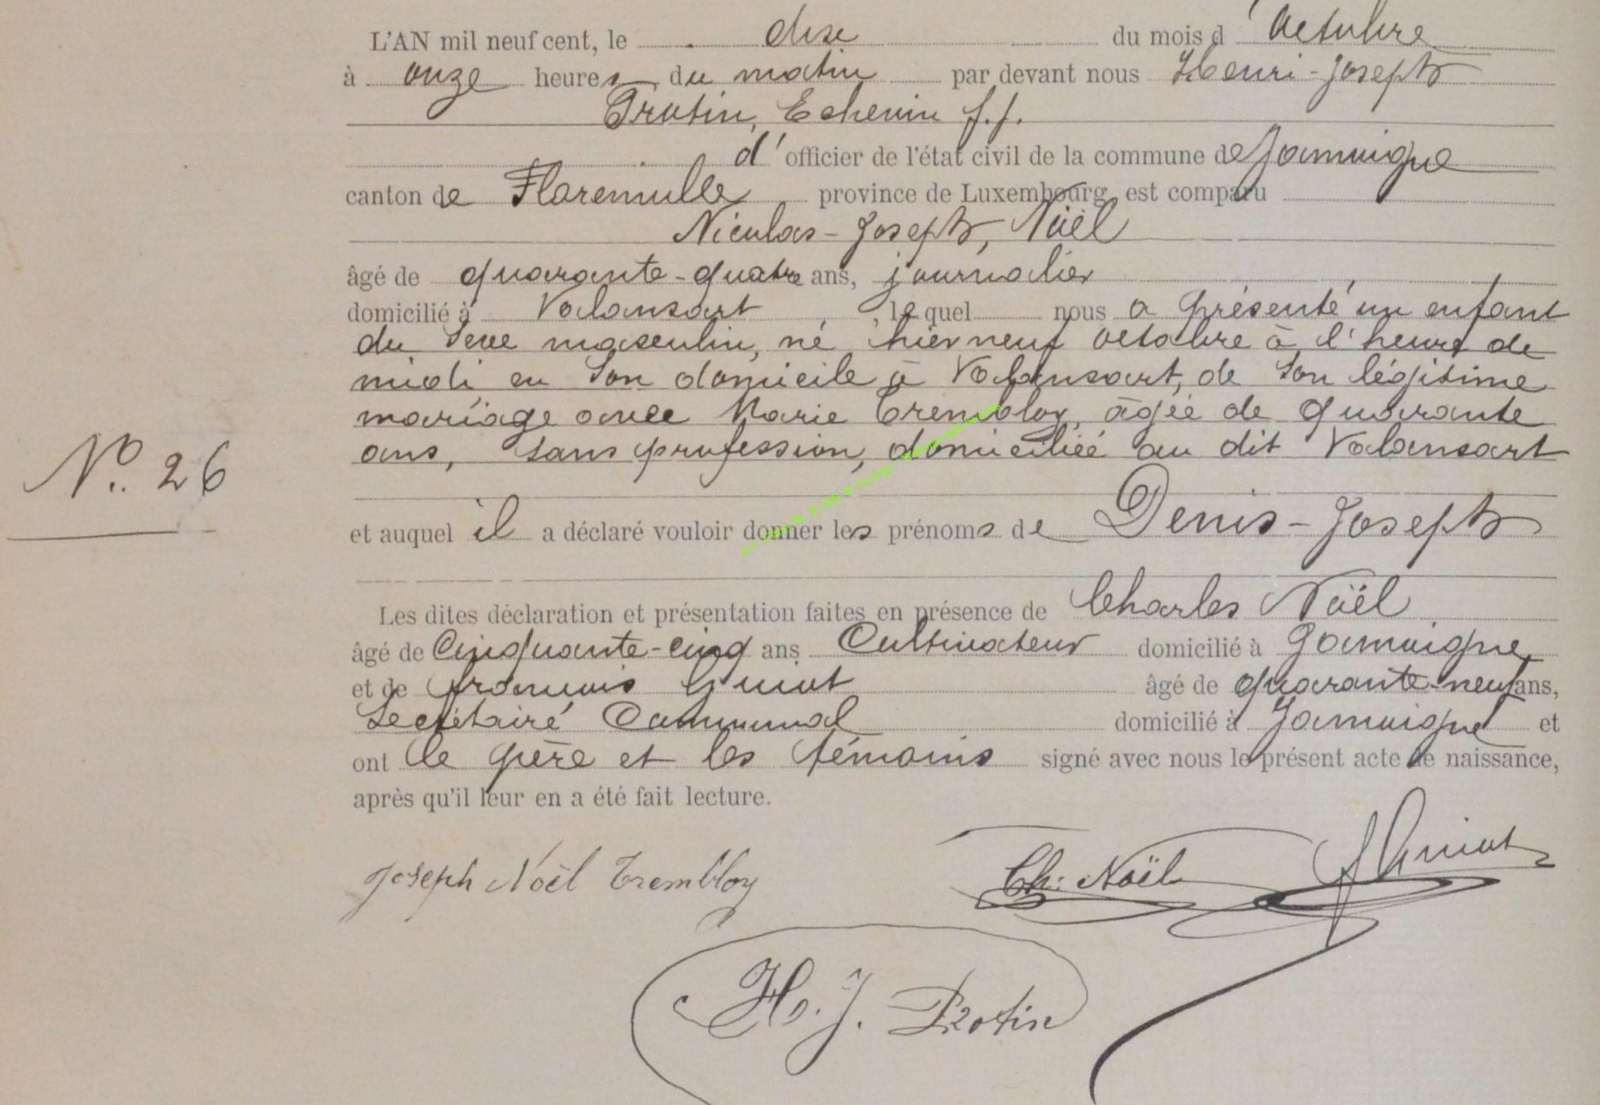 L'AN mil neuf cent, le dix du mois d'Octobre
à onze heures du matin par devant nous Henri-Joseph
Protin, Echevin f.f.
d'officier de l'état civil de la commune de Jamoigne
canton de Florenville province de Luxembourg, est comparu
Nicolas-Joseph, Noël
âgé de quarante-quatre ans, journalier
domicilié à Valansart, lequel nous a présenté un enfant
du sexe masculin, né hier neuf octobre à l'heure de
midi en son domicile à Valansart, de son légitime
mariage avec Marie Trembloy, âgée de quarante
ans, sans profession, domiciliée au dit Valansart
N° 26
et auquel il a déclaré vouloir donner les prénoms de Denis-Joseph
Les dites déclaration et présentation faites en présence de Charles Noël
âgé de cinquante-cinq ans Cultivateur domicilié à Jamoigne
et de François âgé de quarante-neuf ans,
Secrétaire Communal domicilié à Jamoigne et
ont le père et les témoins signé avec nous le présent acte de naissance,
après qu'il leur en a été fait lecture.
Joseph Noël Trembloy Ch: Noël
H. J. Protin